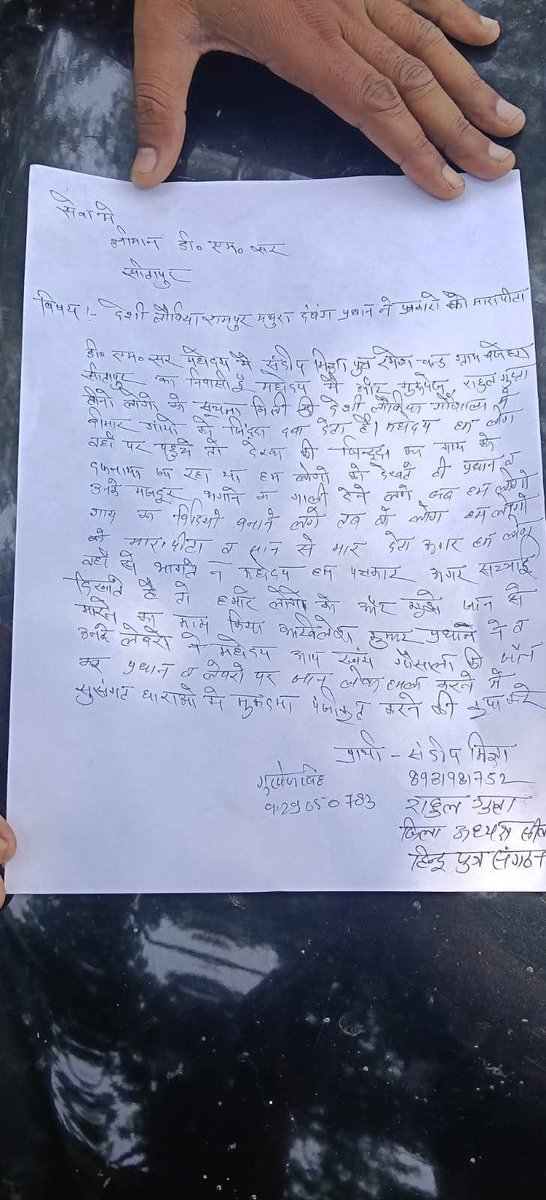 सेवा मे
श्रीमान डी० एम० सर
सीतापुर
विषय :- देशी लौकिया रामपुर मथुरा दबंग प्रधान ने पत्रकारो को मारा पीटा
डी० एम० सर महोदय मै संदीप मिश्रा पुत्र रमेश चन्द्र ग्राम
सीतापुर का निवासी हूँ महोदय मै और राहुल गुप्ता
दोनो लोगो को सूचना मिली की देशी लौकिया गौशाला मे
बीमार गायो को जिंदा दबा देता है। महोदय हम लोग
वहाँ पर पहुचे तो देखा की जिन्दा गाय को
दफनाया जा रहा था हम लोगो को देखते ही प्रधान व
उनके मजदूर भगाने व गाली देने लगे जब हम लोगो
गाय का विडियो बनाने लगे तब वो लोग हम लोगो
को मारा पीटा व जान से मार देता अगर हम लोग
वहाँ से भागते न महोदय हम पत्रकार अगर सच्चाई
दिखाते है तो हमारे लोगो को और मुझे जान से
मारने का काम किया अखिलेश कुमार प्रधान ने व
उनके लेबरो ने महोदय आप स्वयं गौसाला की जाँच
कर प्रधान व लेबरो पर जान लेवा हमला करने मे
सुसंगत धाराओ मे मुकदमा पंजिकृत करने की कृपा करे
प्रार्थी - संदीप मिश्रा
8931981752
राहुल गुप्ता
जिला अध्यक्ष
हिन्दू पुत्र संगठन